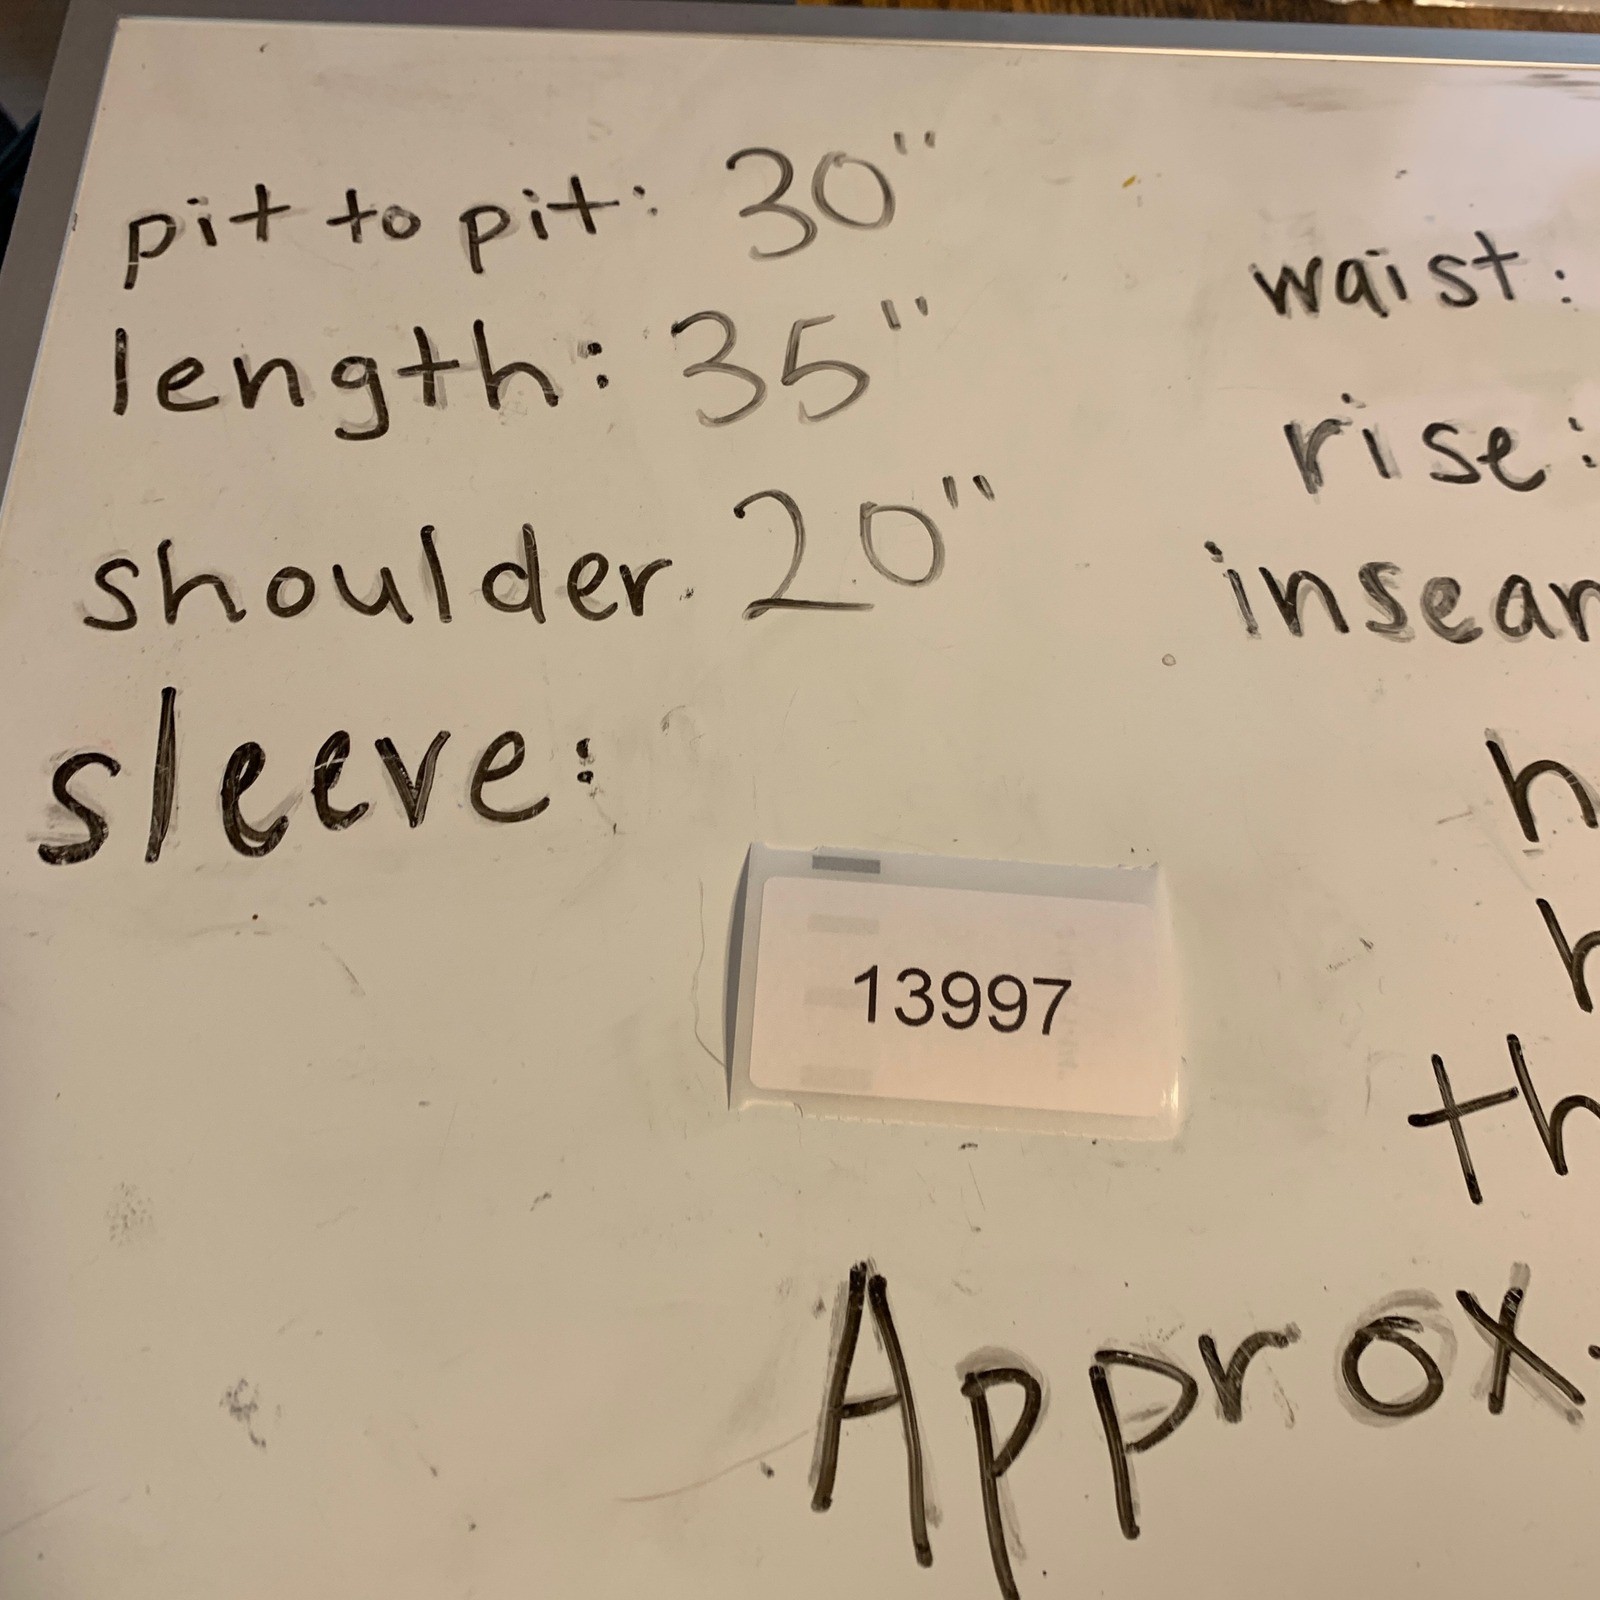 pit to pit: 30"
length: 35"
shoulder. 20"
sleeve:
waist:
rise:
13997
Approx.